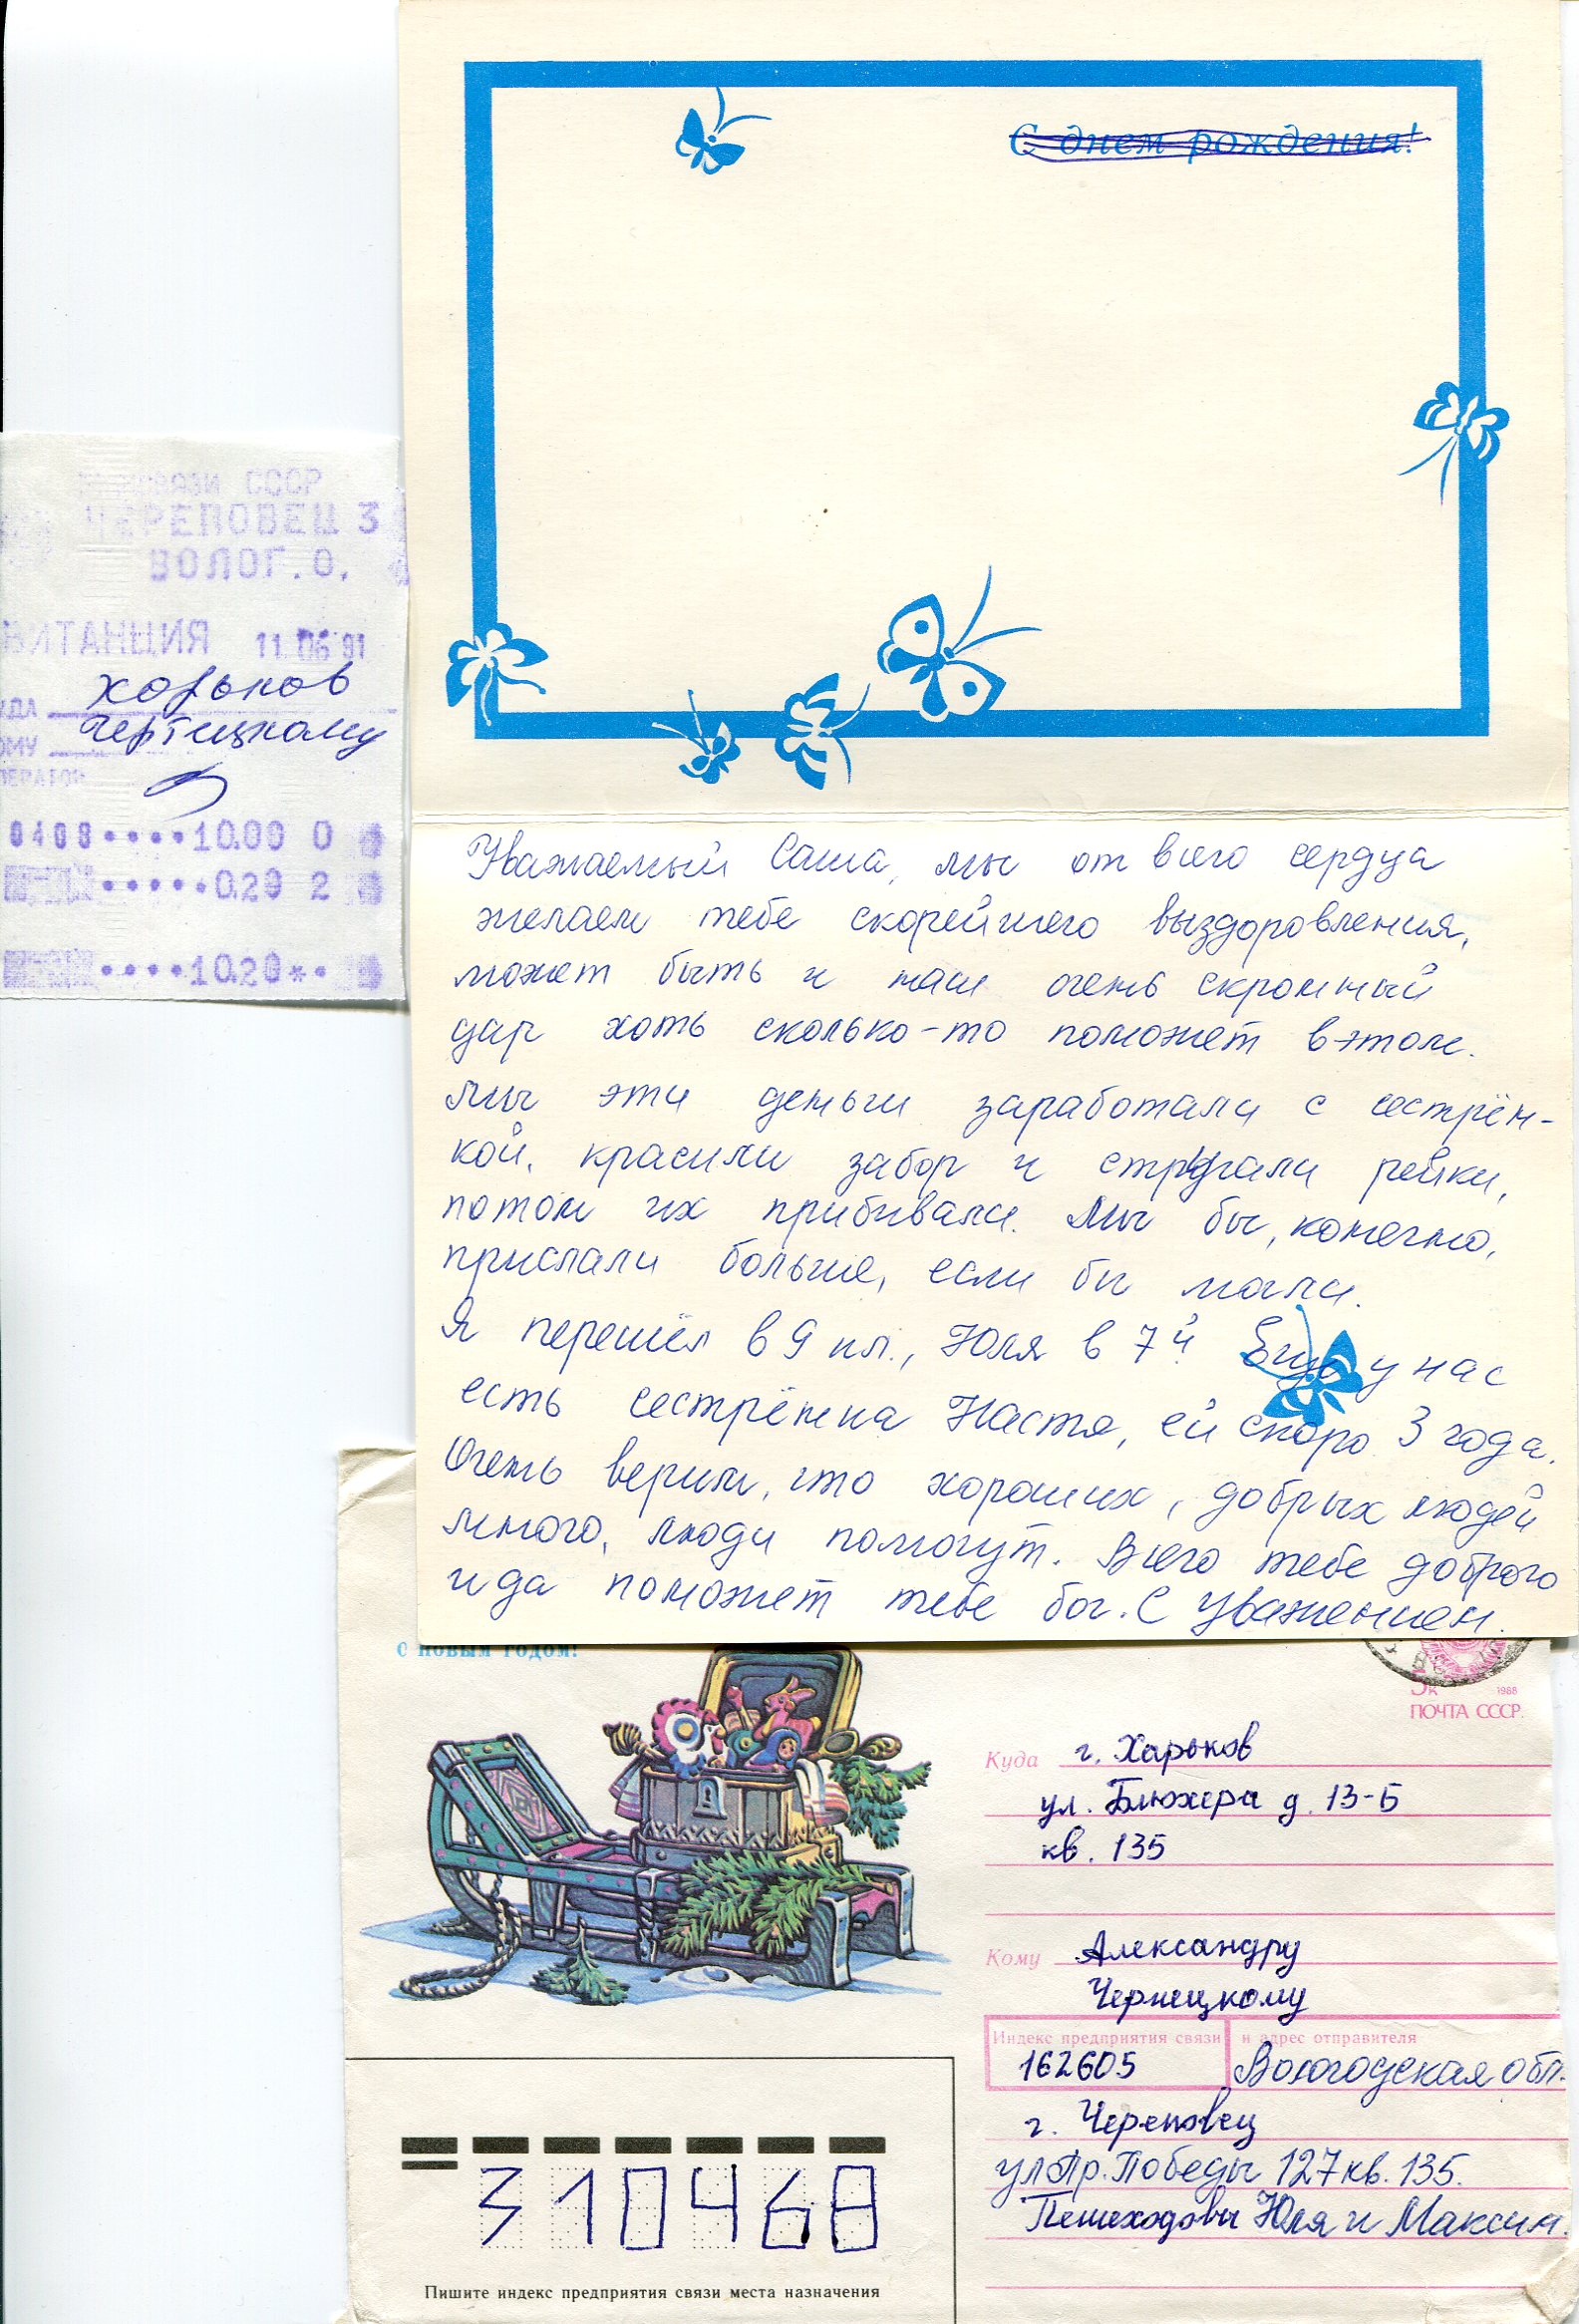 С днем рождения!
СВЯЗИ СССР
ЧЕРЕПОВЕЦ 3
ВОЛОГ.О.
ВИТАНЦИЯ 11.06 91
УДА Харьков
ОМУ Чертицкому
ПЕРАТОР
0408 ....10.00 0
.....0.20 2
....10.20*.
Уважаемый Саша, мы от всего сердца
желаем тебе скорейшего выздоровления,
может быть и наш очень скромный
дар хоть сколько-то поможет в этом.
Мы эти деньги заработали с сестрён-
кой, красили забор и стругали рейки,
потом их прибивали. Мы бы, конечно,
прислали больше, если бы могли.
Я перешёл в 9 кл., Юля в 7й. Ещё у нас
есть сестрёнка Настя, ей скоро 3 года.
Очень верим, что хороших, добрых людей
много, люди помогут. Всего тебе доброго
и да поможет тебе бог. С уважением.
С НОВЫМ ГОДОМ!
5к 1988
ПОЧТА СССР.
Куда г. Харьков
ул. Блюхера д. 13-Б
кв. 135
Кому Александру
Чернецкому
Индекс предприятия связи и адрес отправителя
162605 Вологодская обл.
г. Череповец
ул Пр. Победы 127 кв. 135.
Пешеходовы Юля и Максим.
310468
Пишите индекс предприятия связи места назначения